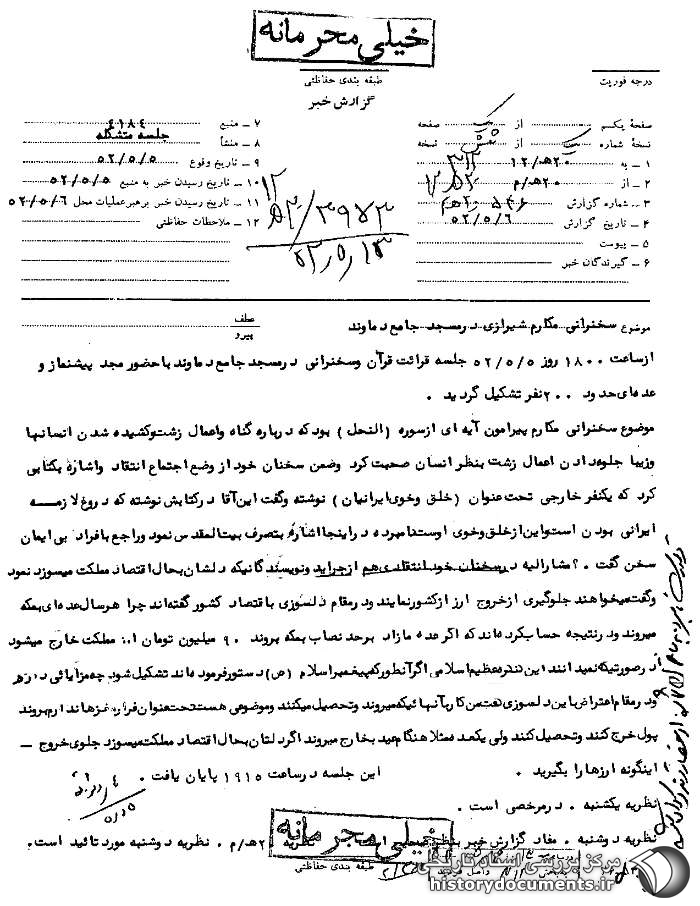 خیلی محرمانه
درجه فوریت
طبقه بندی حفاظتی
گزارش خبر
صفحهٔ یکم از یک صفحه
نسخهٔ شماره یک از شش نسخه
۱ – به ۲۰ﻫ/۱۲ ۳۲۲
۲ – از ۲۰ﻫ/م
۳ – شماره گزارش
۴ – تاریخ گزارش ۵۲/۵/۶
۵ – پیوست
۶ – گیرندگان خبر
۷ – منبع ۴۱۸۴
۸ – منشأ جلسه متشکله
۹ – تاریخ وقوع ۵۲/۵/۵
۱۰ – تاریخ رسیدن خبر به منبع ۵۲/۵/۵
۱۱ – تاریخ رسیدن خبر برهبر عملیات محل ۵۲/۵/۶
۱۲ – ملاحظات حفاظتی
۵۲/۵/۱۳
موضوع سخنرانی مکارم شیرازی در مسجد جامع دماوند
عطف
پیرو
از ساعت ۱۸۰۰ روز ۵۲/۵/۵ جلسه قرائت قرآن وسخنرانی در مسجد جامع دماوند با حضور مجد پیشنماز و
عده‌ای حدود ۲۰۰ نفر تشکیل گردید .
موضوع سخنرانی مکارم پیرامون آیه ای ازسوره (النحل) بود که درباره گناه واعمال زشت وکشیده شدن انسانها
وزیبا جلوه دادن اعمال زشت بنظر انسان صحبت کرد وضمن سخنان خود از وضع اجتماع انتقاد واشاره بکتابی
کرد که یکنفر خارجی تحت عنوان (خلق وخوی ایرانیان) نوشته وگفت این آقا درکتابش نوشته که دروغ لازمه
ایرانی بودن است واین ازخلق وخوی اوست نامبرده دراینجا اشاره بتصرف بیت المقدس نمود وراجع بافراد بی ایمان
سخن گفت . مشارالیه در سخنان خود انتقادی هم از جراید ونویسندگانیکه دلشان بحال اقتصاد مملکت میسوزد نمود
وگفت میخواهند جلوگیری از خروج ارز از کشور نمایند ودرمقام دلسوزی با قتصاد کشور گفته‌اند چرا هرسال عده‌ای بمکه
میروند ودرنتیجه حساب کرده‌اند که اگر عده مازاد برحد نصاب بمکه بروند ۹۰ میلیون تومان از مملکت خارج میشود
درصورتیکه نمیدانند این کنگره عظیم اسلامی اگر آنطور که پیغمبر اسلام (ص) دستور فرموده‌اند تشکیل شود چه مزایائی دارد
ودرمقام اعتراض باین دلسوزی هست من کار بآنهائیکه میروند وتحصیل میکنند وموضوعی هست تحت عنوان فرار مغزها ندارم بروند
پول خرج کنند وتحصیل کنند ولی یکعده مثلا هنگام عید بخارج میروند اگر دلتان بحال اقتصاد مملکت میسوزد جلوی خروج –
اینگونه ارزها را بگیرید . این جلسه در ساعت ۱۹۱۵ پایان یافت .
نظریه یکشنبه . در مرخصی است .
نظریه دوشنبه . مفاد گزارش خبر بنظر صحیح است نظریه ۲۰ﻫ/م . نظریه دوشنبه مورد تائید است .
خیلی محرمانه
طبقه بندی حفاظتی
مرکز بررسی اسناد تاریخی
historydocuments.ir